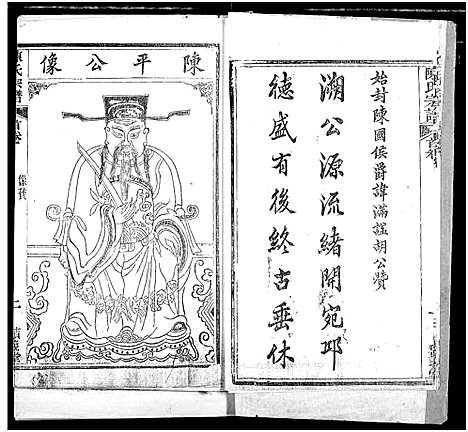 陳氏宗譜
首卷
始封陳國侯爵諱滿謚胡公贊
溯公源流緒開宛邱
德盛有後終古垂休
陳平公像
陳氏宗譜
首卷
像贊
二